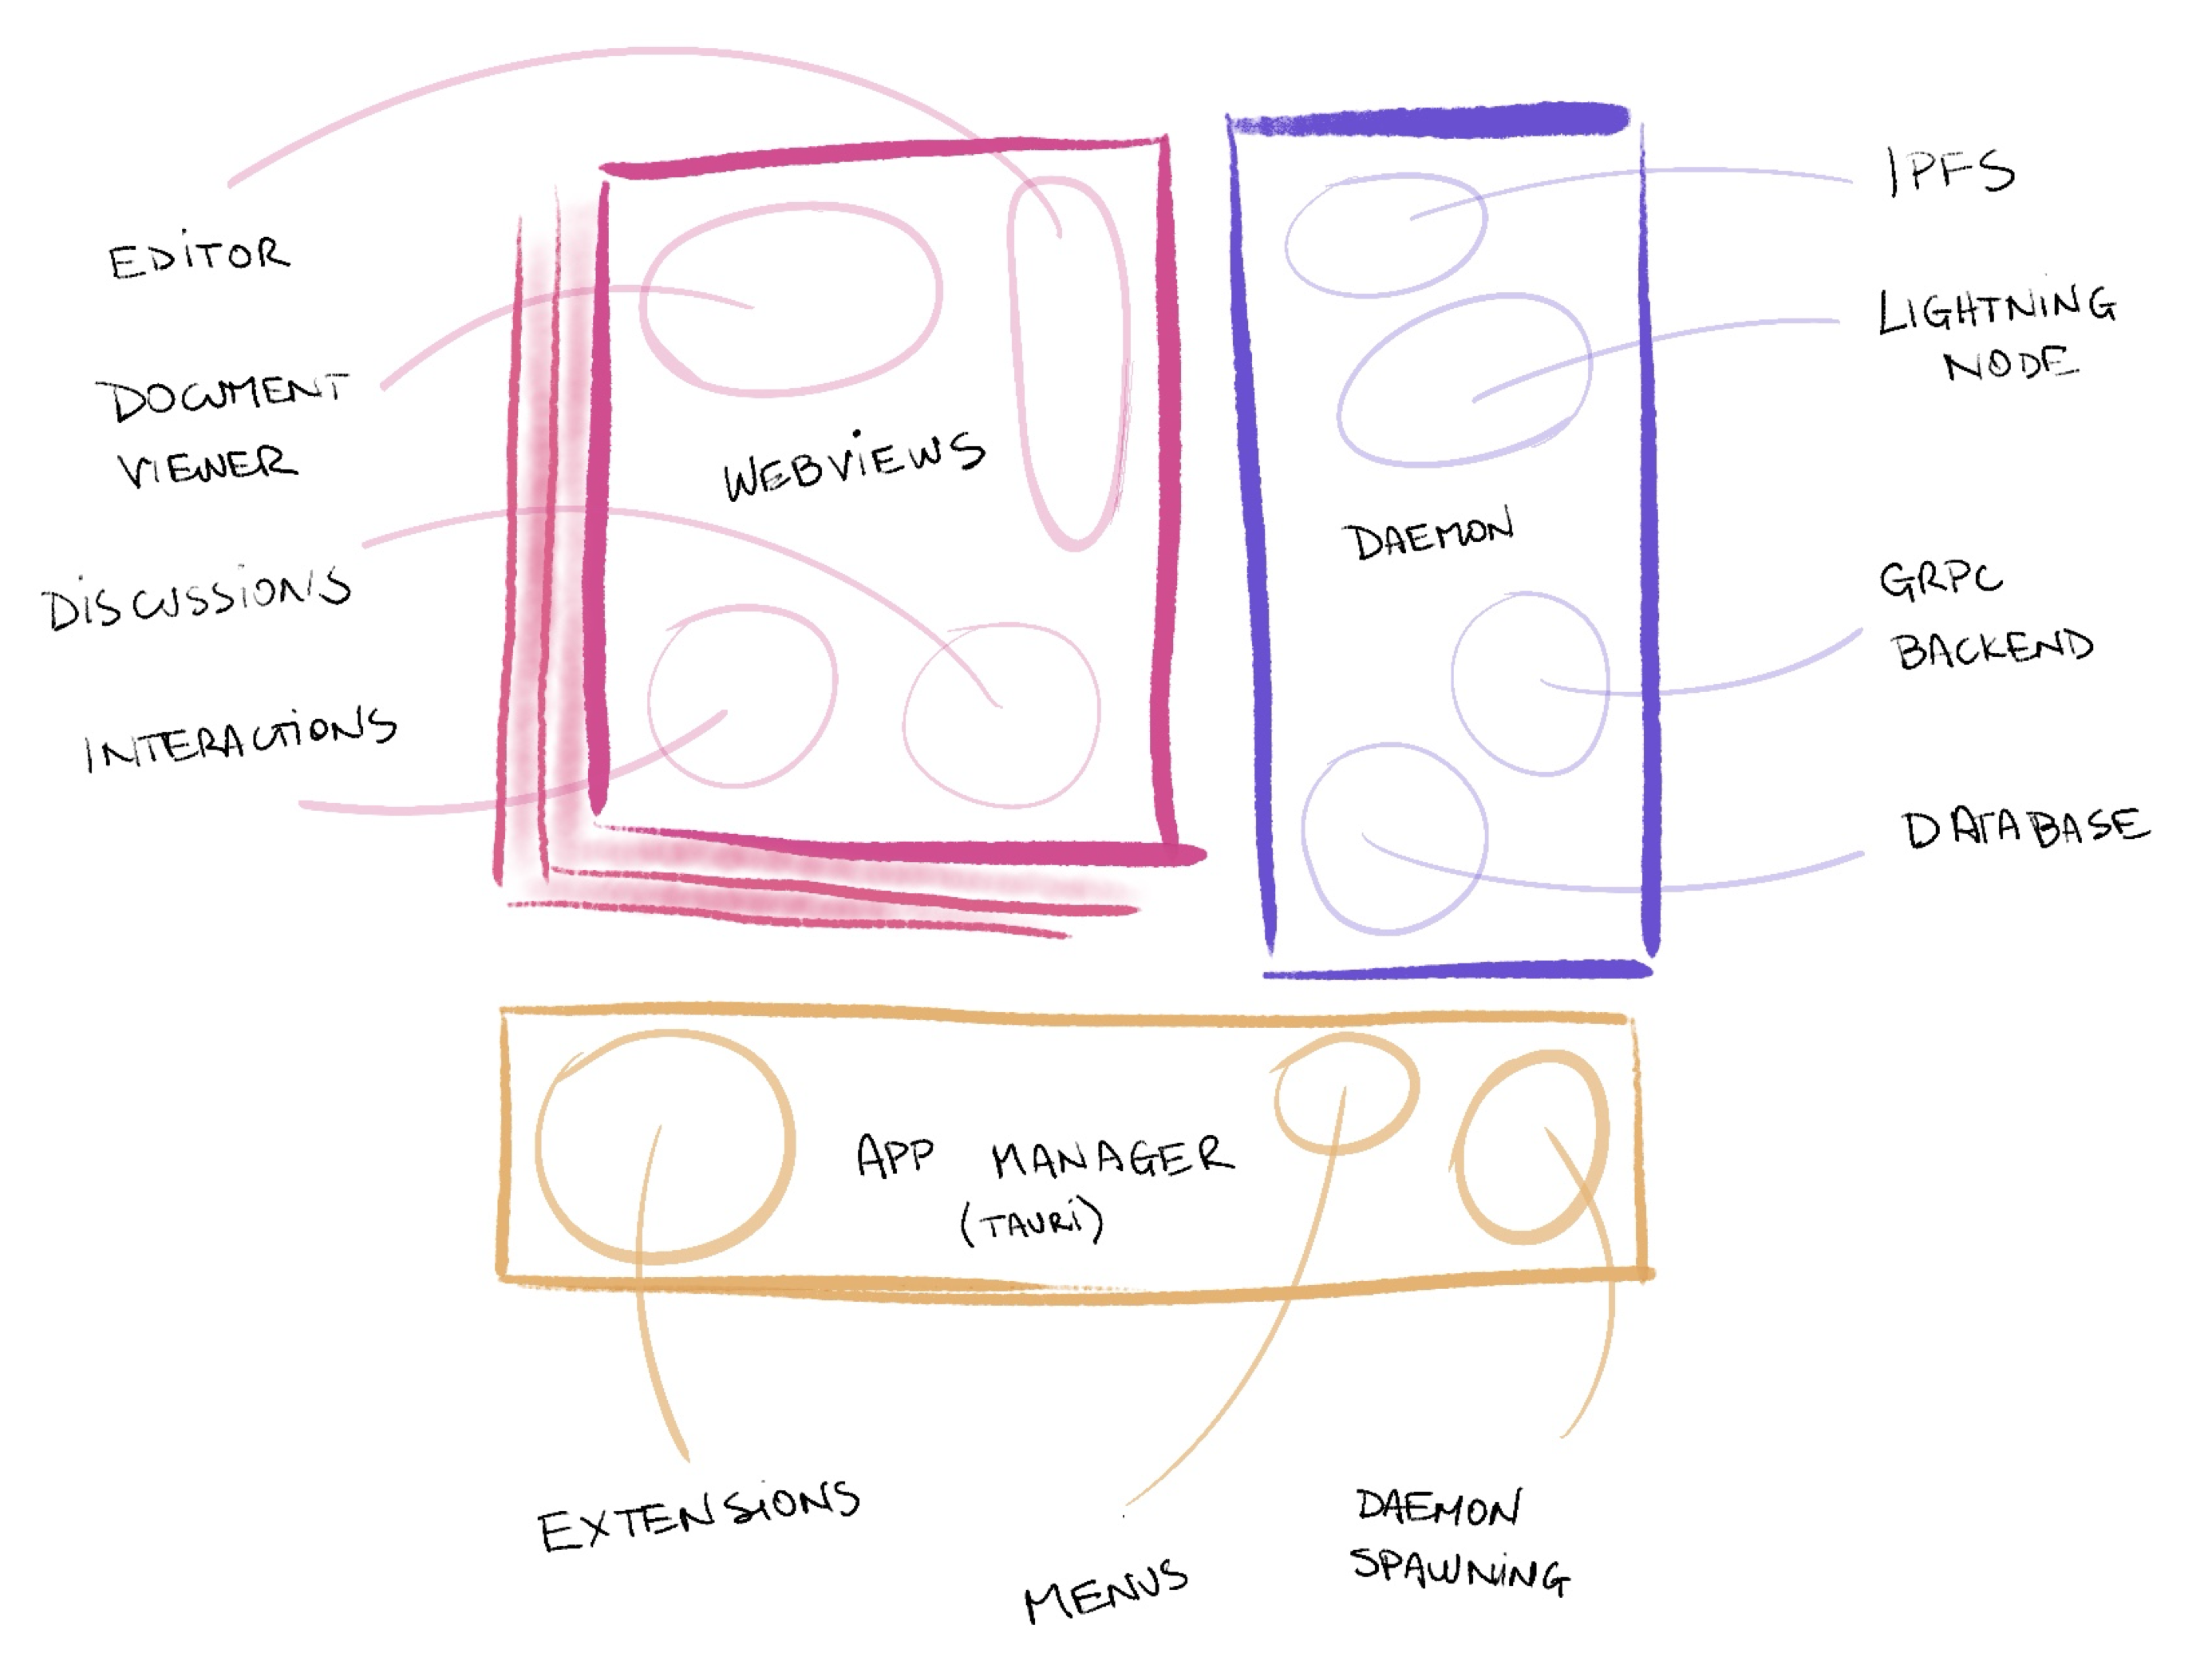 EDITOR
DOCUMENT
VIEWER
DISCUSSIONS
INTERACTIONS
WEBVIEWS
DAEMON
IPFS
LIGHTNING
NODE
GRPC
BACKEND
DATABASE
APP MANAGER
(TAURI)
EXTENSIONS
MENUS
DAEMON
SPAWNING